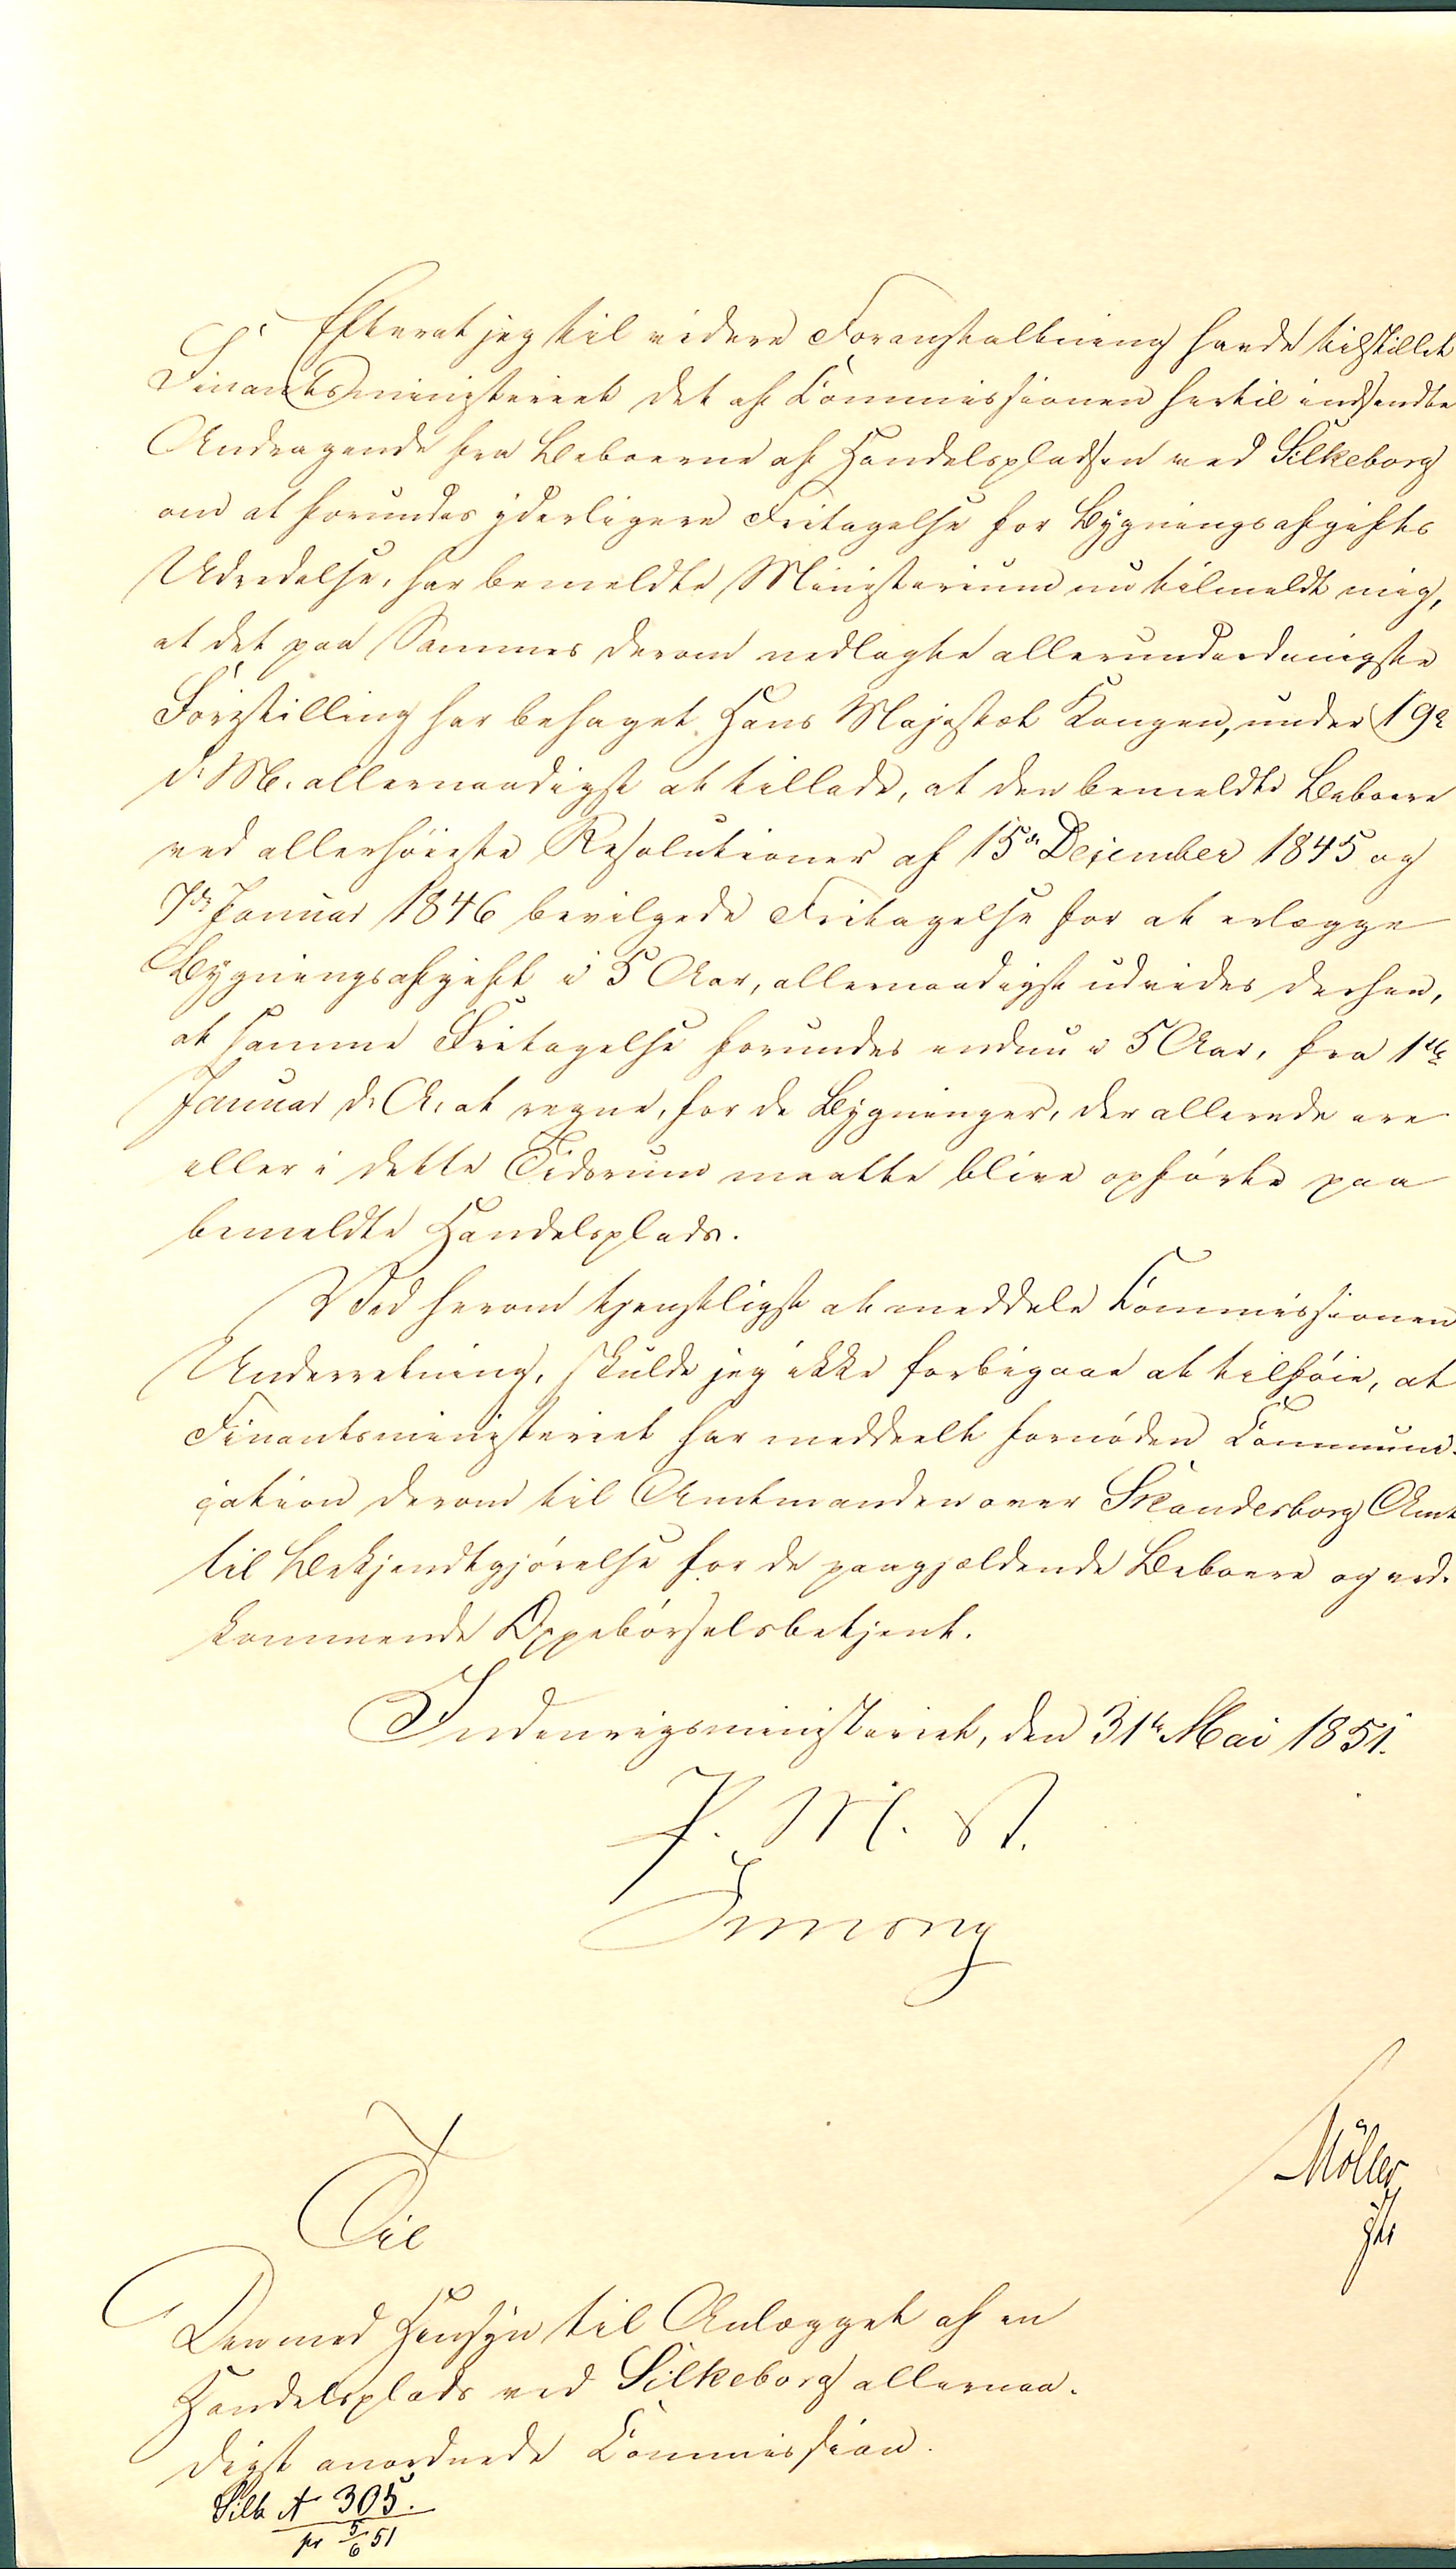 Efterat jeg til videre Foranstaltning havde tilstillet
Finantsministeriet det af Commissionen hertil indsendte
Andragende fra Beboerne af Handelspladsen ved Silkeborg
om at forundes yderligere Fritagelse for Bygningsafgifts
Udredelse, har bemeldte Ministerium nu tilmeldt mig,
at det paa Sammes derom nedlagte allerunderdanigste
Forestilling har behaget Hans Majestæt Kongen, under 19de
d. M. allernaadigst at tillade, at den bemeldte Beboere
ved allerhøieste Resolutioner af 15de December 1845 og
7de Januar 1846 bevilgede Fritagelse for at erlægge
Bygningsafgift i 5 Aar, allernaadigst udvides derhen,
at samme Fritagelse forundes endnu i 5 Aar, fra 1ste
Januar d. A. at regne, for de Bygninger, der allerede ere
eller i dette Tidsrum maatte blive opførte paa
bemeldte Handelsplads.
Ved herom tjenstligst at meddele Commissionen
Underretning, skulde jeg ikke forbigaae at tilføie, at
Finantsministeriet har meddeelt fornøden Communi-
cation derom til Amtmanden over Skanderborg Amt
til Bekjendtgjørelse for de paagjældende Beboere og ved-
kommende Oppebørselsbetjent.
Indenrigsministeriet, den 31te Mai 1851.
F. M. T.
Simony
Møller
Til
Den med Hensyn til Anlægget af en
Handelsplads ved Silkeborg allernaa-
digst anordnede Commission.
Silk A 305.
pr 5/6 51